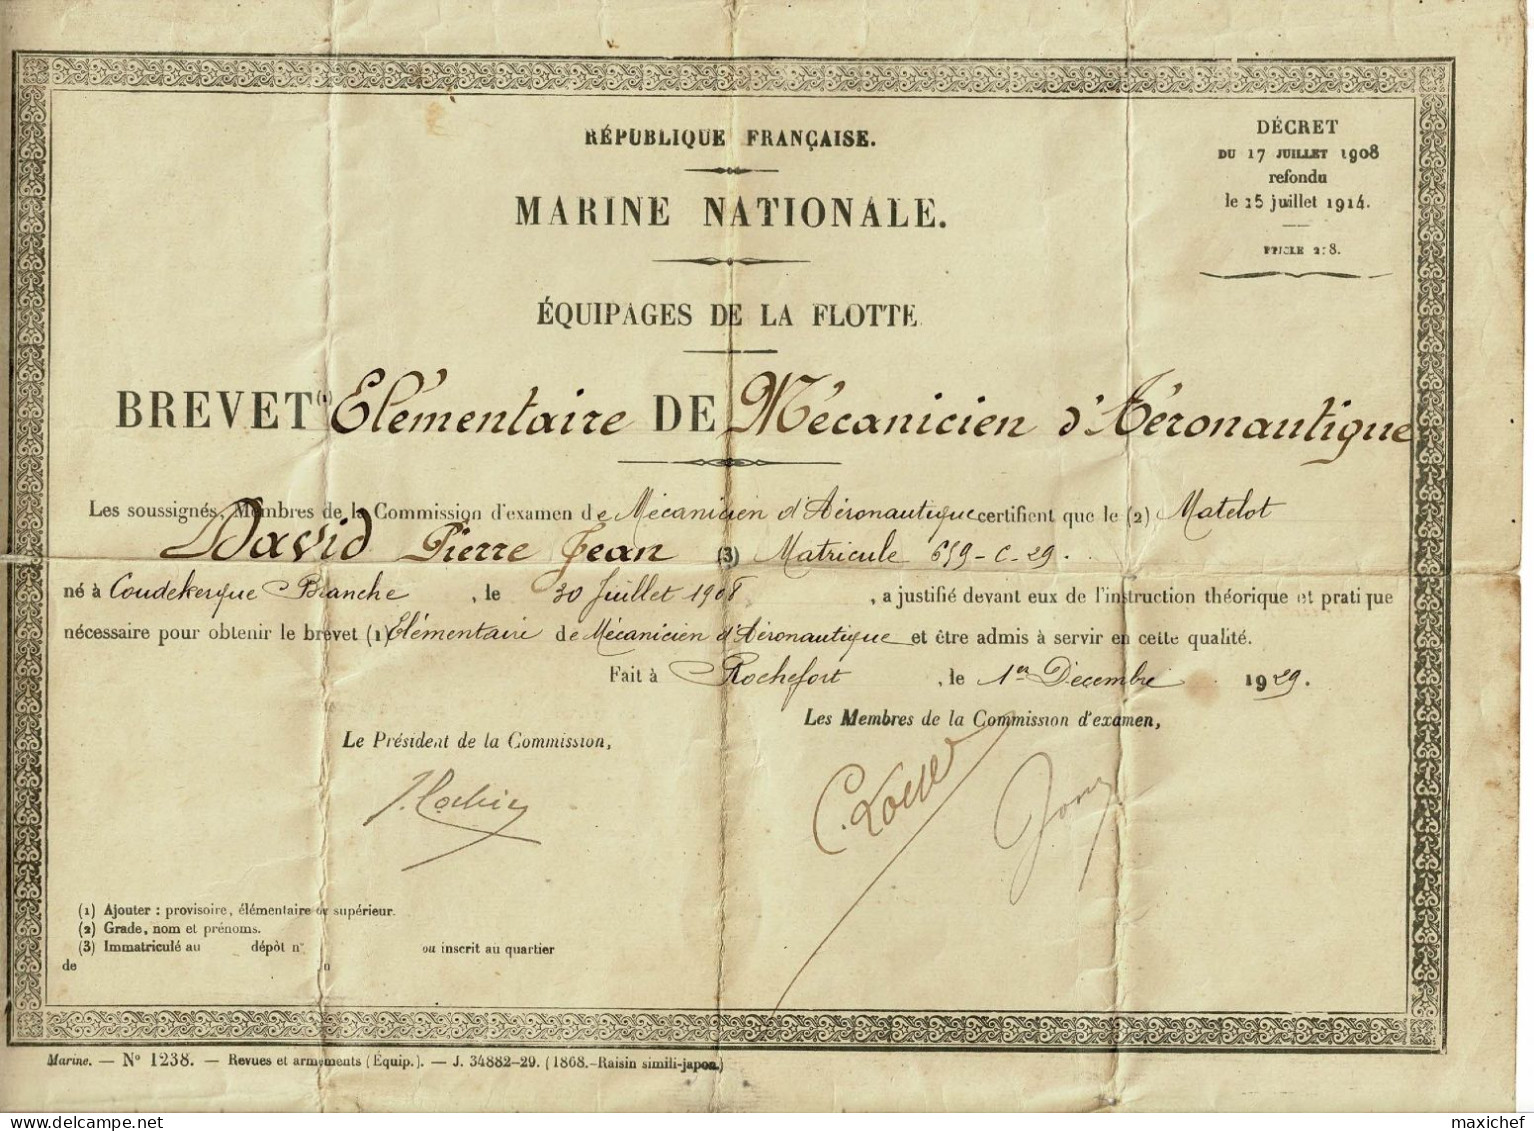 RÉPUBLIQUE FRANÇAISE.
MARINE NATIONALE.
ÉQUIPAGES DE LA FLOTTE
DÉCRET
DU 17 JUILLET 1908
refondu
le 15 juillet 1914.
BREVET (1) Elémentaire DE Mécanicien d'Aéronautique
Les soussignés, Membres de la Commission d'examen de Mécanicien d'Aéronautique certifient que le (2) Matelot
David Pierre Jean (3) Matricule 659-C-29.
né à Coudekerque Branche, le 30 Juillet 1908, a justifié devant eux de l'instruction théorique et pratique
nécessaire pour obtenir le brevet (1) Elémentaire de Mécanicien d'Aéronautique et être admis à servir en cette qualité.
Fait à Rochefort, le 1er Décembre 1929.
Les Membres de la Commission d'examen,
Le Président de la Commission,
(1) Ajouter : provisoire, élémentaire ou supérieur.
(2) Grade, nom et prénoms.
(3) Immatriculé au dépôt n° ou inscrit au quartier
de
Marine. — N° 1238. — Revues et armements (Équip.). — J. 34882-29. (1868.-Raisin simili-japon.)
maxichef